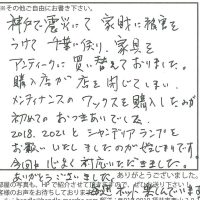 ※その他ご自由にお書き下さい。
神戸で震災にて 家財に被害を
うけて 千葉に戻り、家具を
アンティークに買い替えておりました。
購入店が店を閉じてしまい、
メンテナンスのワックスを購入したのが
初めてのおつきあいでした。
2018.2021とシャンデリアランプを
お願いいたしましたのが始まりです
今回も心よく対応いただきました。
ありがとうございました。
ありがとうございました。